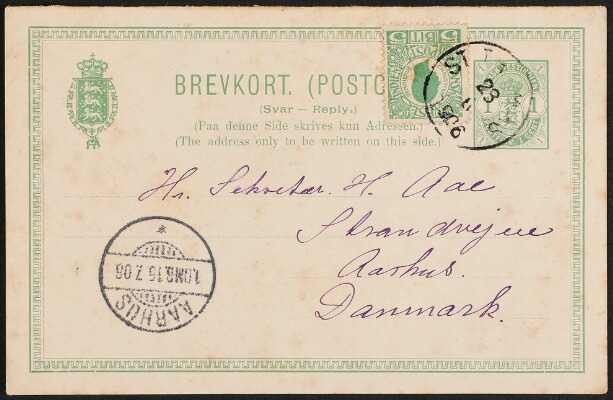 BREVKORT. (POSTC
(Svar — Reply.)
(Paa denne Side skrives kun Adressen.)
(The address only to be written on this side.)
5 BIT 5
ST
23
1906
1 1
Hr. Sekretær H. Aae
Strandvejen
Aarhus.
Danmark.
AARHUS
1.OMB. 15.7.06